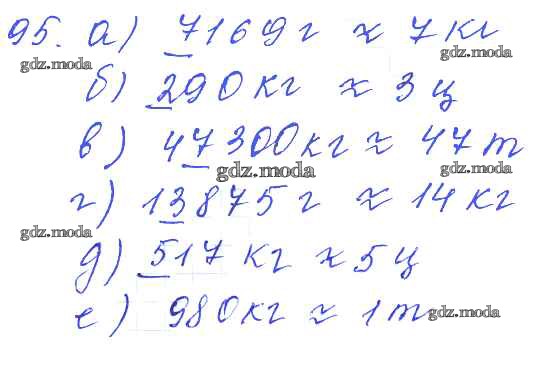 95. а) 7169 г ≈ 7 кг
gdz.moda gdz.moda
б) 290 кг ≈ 3 ц
в) 47300 кг ≈ 47 т
gdz.moda gdz.moda
г) 13875 г ≈ 14 кг
gdz.moda
д) 517 кг ≈ 5 ц
е) 980 кг ≈ 1 т gdz.moda